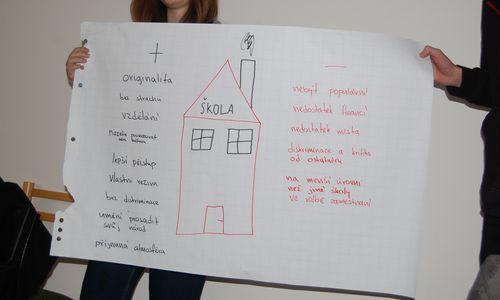 +
originalita
bez strachu
vzdělání
lepší přístup
vlastní režim
bez diskriminace
umění prosadit
svůj názor
příjemná atmosféra
ŠKOLA
—
nebýt populární
nedostatek financí
nedostatek místa
diskriminace a kritika
od ostatních
na menší úrovni
než jiné školy
ve volbě zaměstnání